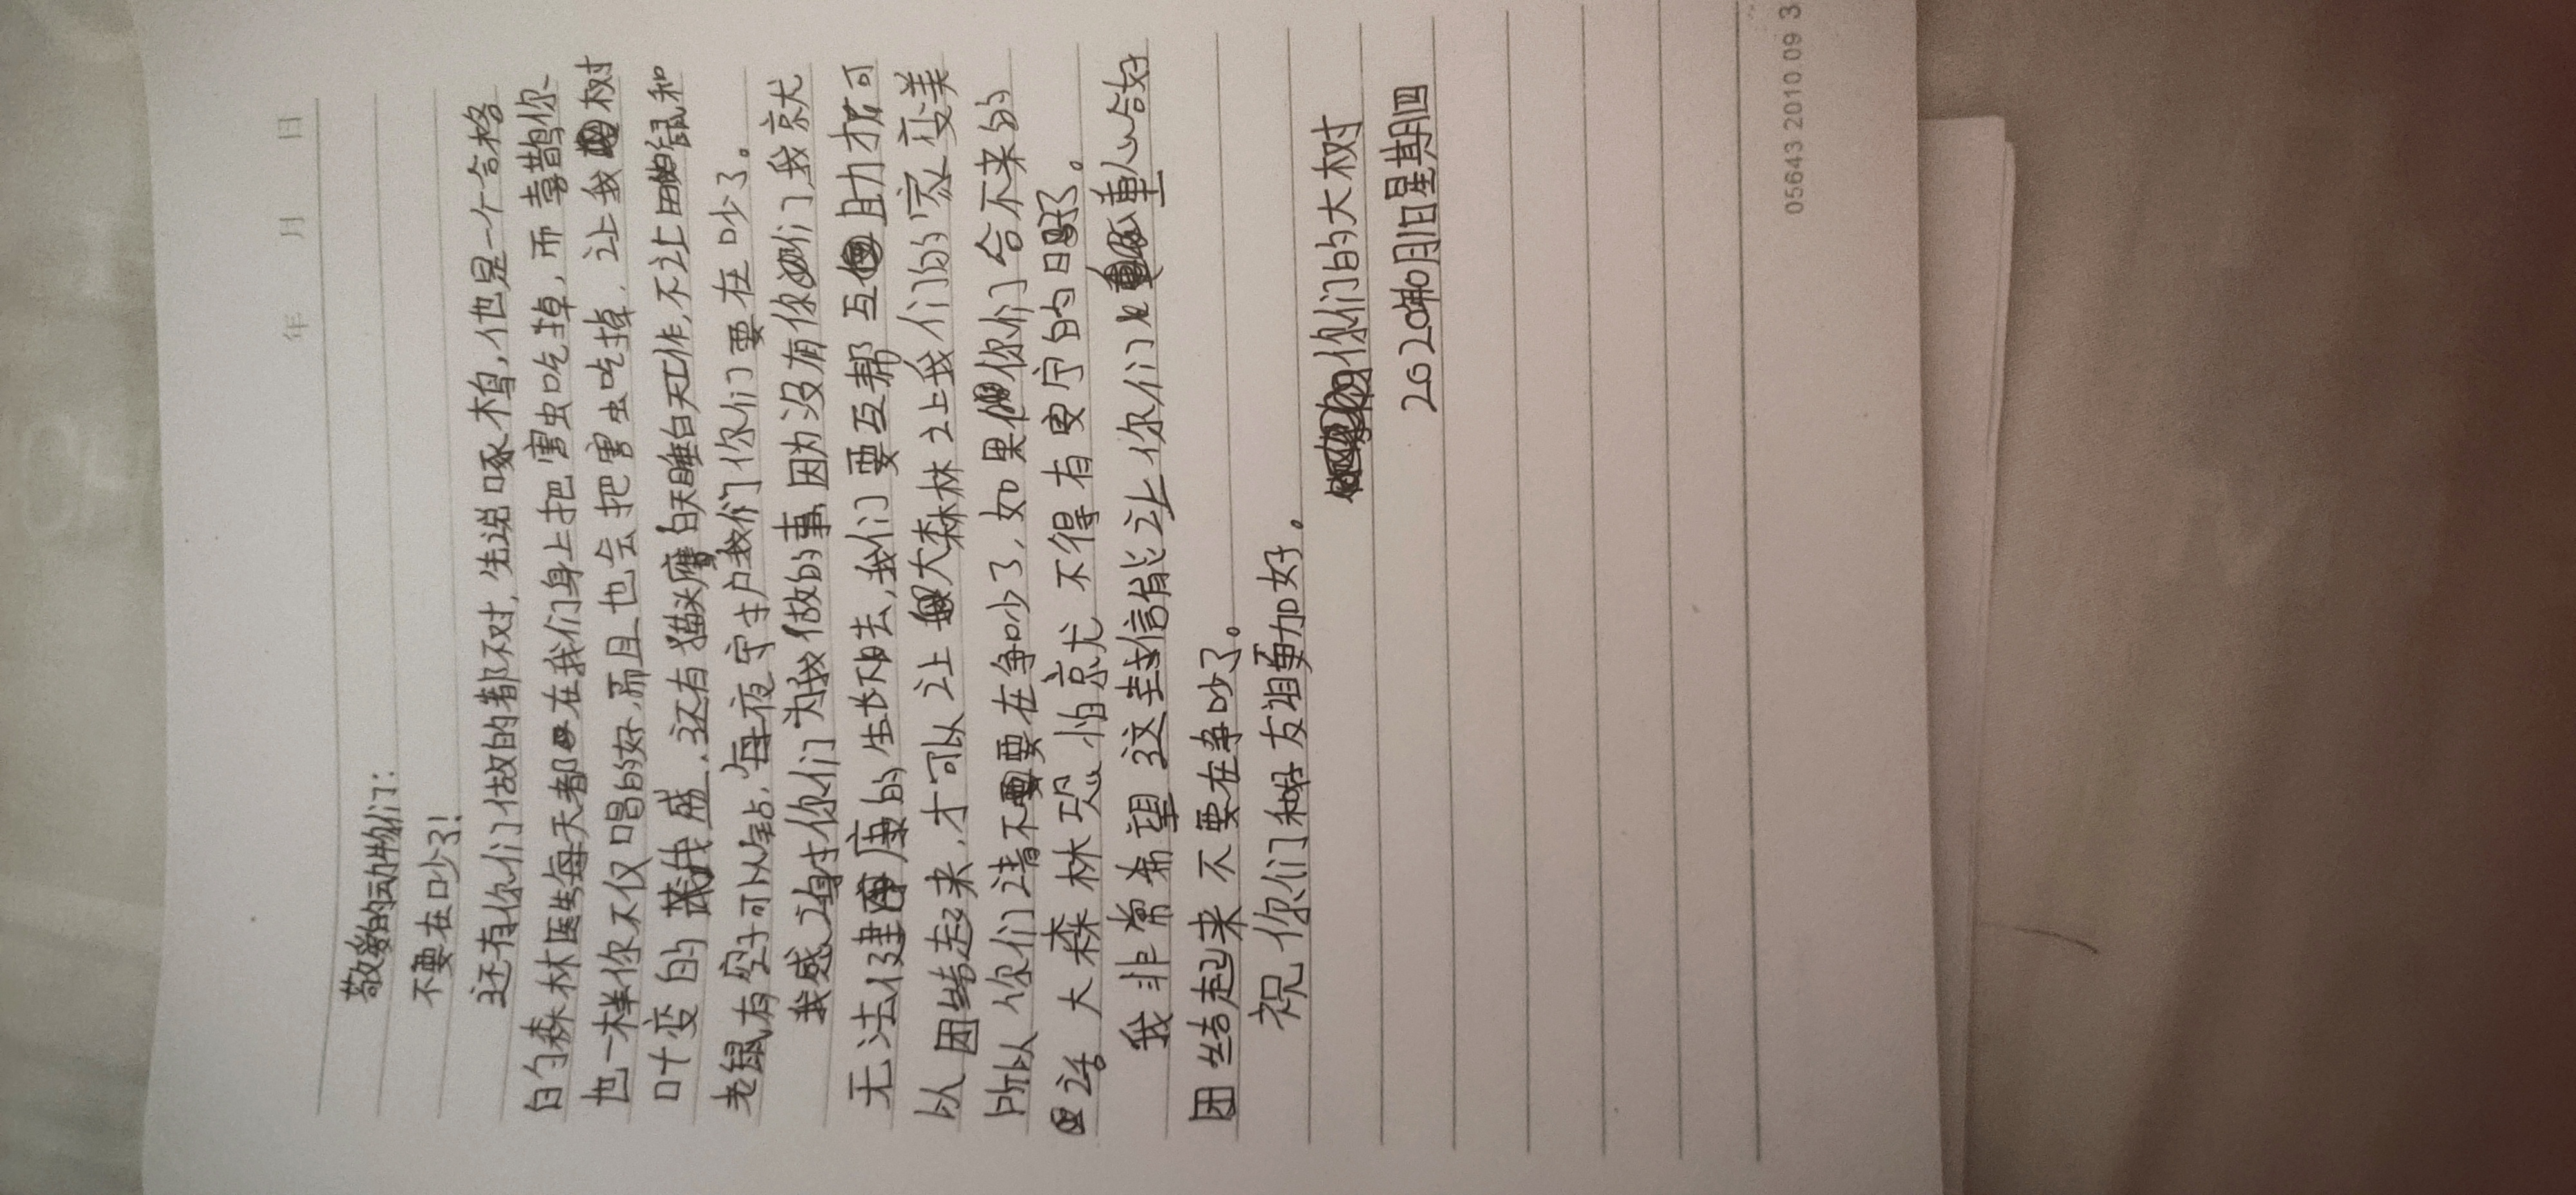 年 月 日
敬爱的动物们：
不要在吵了！
还有你们做的都不对，先说啄木鸟，他是一个合格
的森林医生每天都在我们身上把害虫吃掉，而喜鹊你
也一样你不仅唱的好，而且也会把害虫吃掉，让我树
叶变的茂盛，还有猫头鹰白天睡白天工作，不让田鼠和
老鼠有空子可以钻，每夜守护我们你们要在吵了。
我感谢你们为我做的事因为没有你们我就
无法健康的生长下去，我们要互帮互助才可
以团结起来，才可以让大森林让我们的家变美
所以你们请不要在争吵了，如果你们合不来的
话大森林恐怕就不得有安宁的日子了。
我非常希望这封信能让你们重心合好
团结起来不要在争吵了。
祝你们和好友谊更加好。
你们的大树
2020年10月1日星期四
05643 2010.09 3